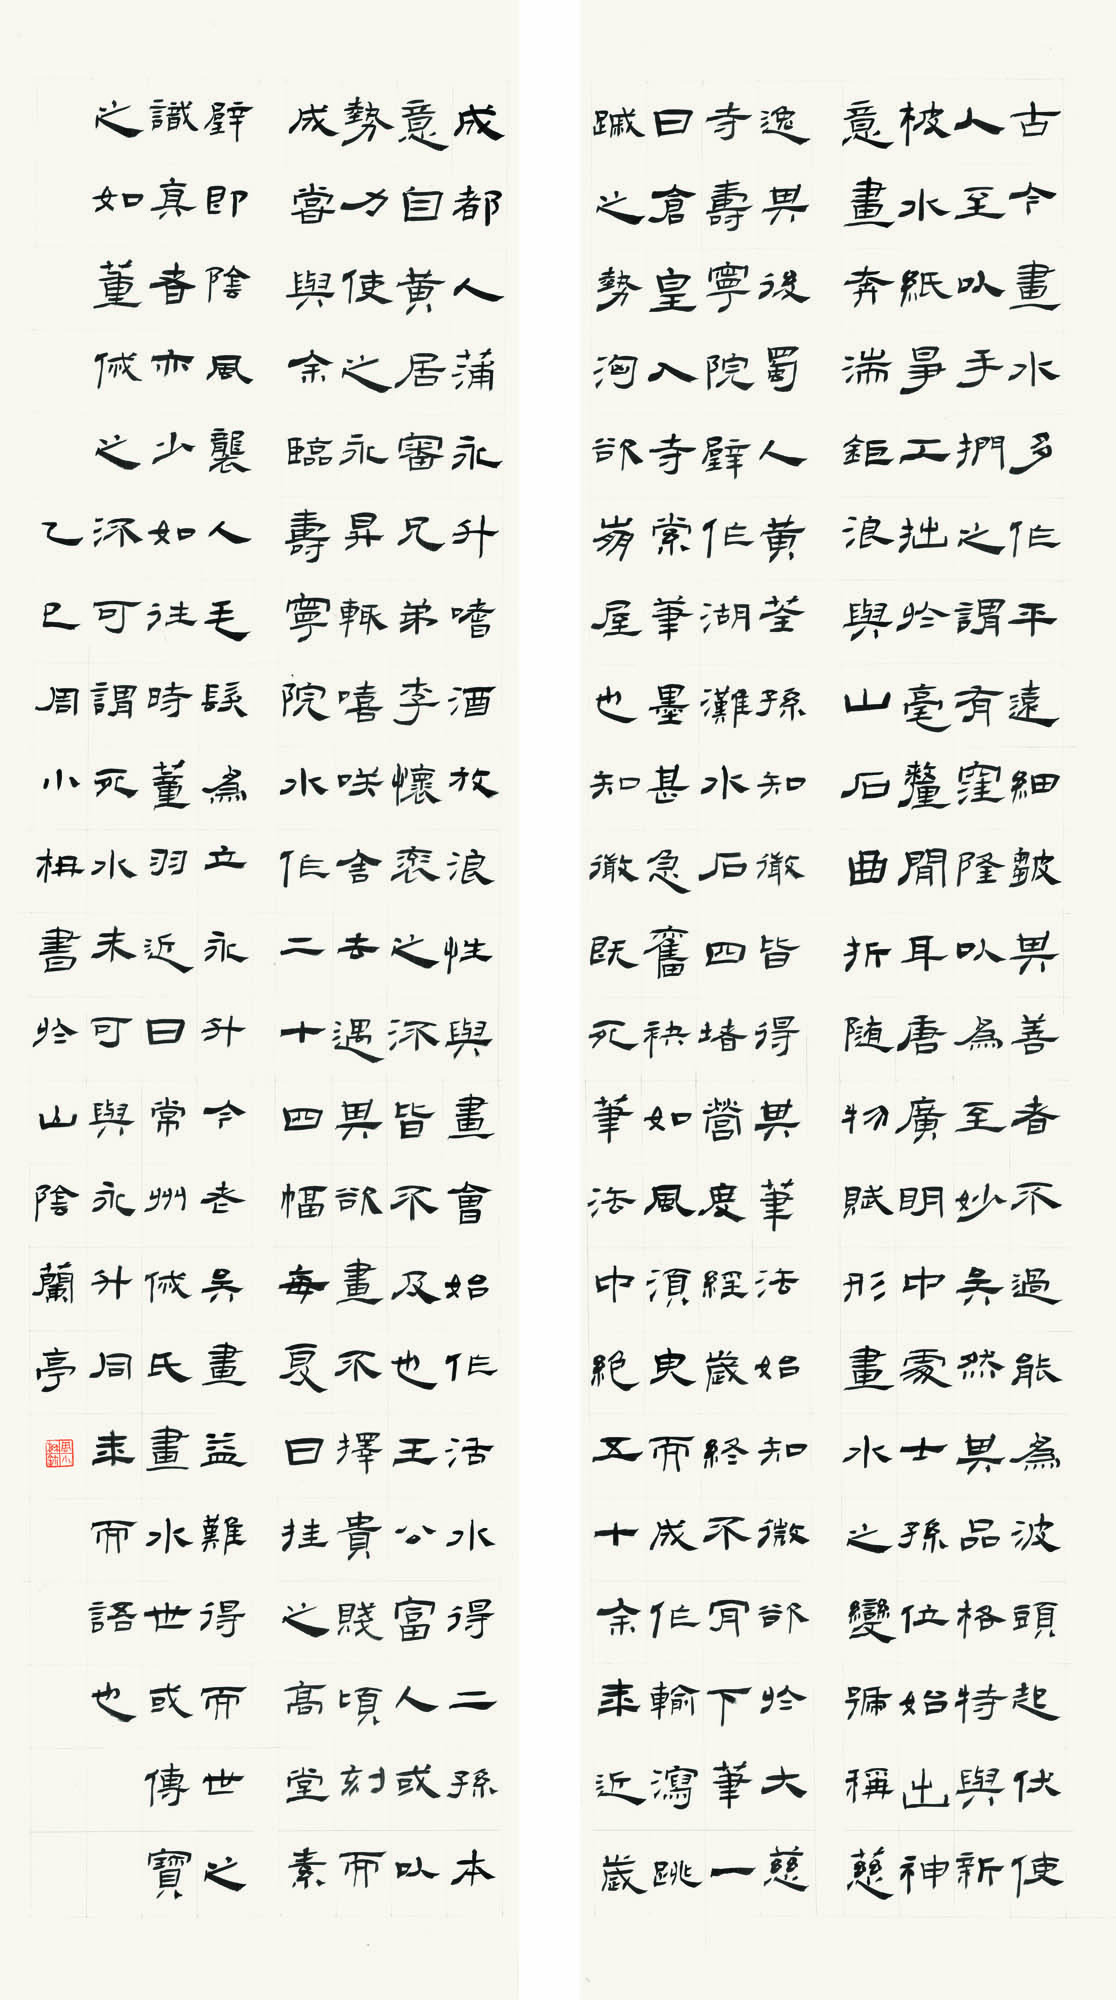 古今畫水多作平遠細皺其善者不過能為波頭起伏使
人至以手捫之謂有窪隆以為至妙矣然其品格特與新
板水紙爭工拙於毫釐間耳唐廣明中處士孫位始出神
意畫奔湍鉅浪與山石曲折隨物賦形畫水之變號稱慈
逸其後蜀人黃荃孫知微皆得其筆法始知微欲於大慈
寺壽寧院壁作湖灘水石四堵營度經歲終不肯下筆一
日倉皇入寺索筆墨甚急奮袂如風須臾而成作輸瀉跳
蹴之勢洶欲崩屋也知微既死筆法中絕五十余年近歲
成都人蒲永升嗜酒放浪性與畫會始作活水得二孫本
意自黃居寀兄弟李懷袞之流皆不及也王公富人或以
勢力使之永昇輒嘻咲舍去遇其欲畫不擇貴賤頃刻而
成嘗與余臨壽寧院水作二十四幅每夏日挂之高堂素
壁即陰風襲人毛髮為立永升今老矣畫益難得而世之
識真者亦少如往時董羽近日常州戚氏畫水世或傳寶
之如董戚之流可謂死水未可與永升同年而語也
乙巳周小枏書於山陰蘭亭